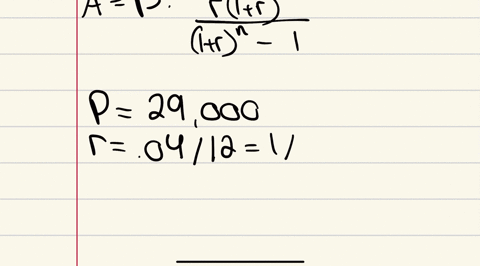 A = P. r(1+r)
(1+r)^n - 1
P = 29,000
r = .04/12 = 1/